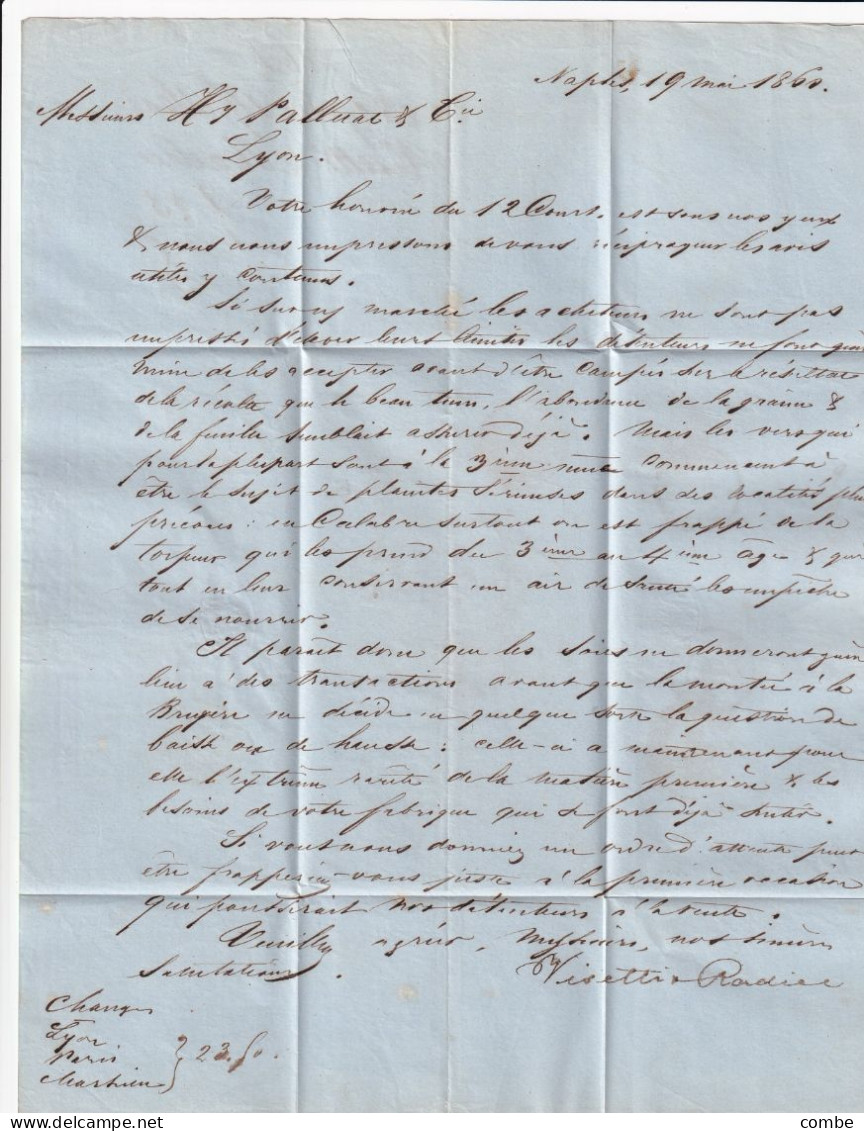 Naples, 19 mai 1860.
Messieurs Hy Palluat & Cie
Lyon.
Votre honorée du 12 Court. est sous nos yeux
& nous nous empressons de vous réciproquer les avis
utiles y contenus.
Si sur n/ marché les acheteurs ne sont pas
empressés d'élever leurs limites les détenteurs ne font guère
mine de les accepter avant d'être campés sur le résultat
de la récolte que le beau tems, l'abondance de la graine &
de la feuille semblait assurer déjà. Mais les vers qui
pour la plupart sont à la 3ième mue commencent à
être le sujet de plaintes sérieuses dans des localités plus
précoces: en Calabre surtout on est frappé de la
torpeur qui les prend du 3ième au 4ième âge & qui
tout en leur conservant un air de santé les empêche
de se nourrir.
Il paraît donc que les soies ne donneront guère
lieu à des transactions avant que la montée à la
Bruyère ne décide en quelque sorte la question de
baisse ou de hausse: celle-ci a maintenant pour
elle l'extrême rareté de la matière première & les
besoins de votre fabrique qui se font déjà sentir.
Si vous nous donniez un ordre d'attente peut
être frapperiez-vous juste à la première occasion
qui pousserait nos détenteurs à la vente.
Veuillez agréer, Messieurs, nos sincères
salutations.
Visetti & Radice
Changes
Lyon
Paris
Marseille } 23.50.
delcampe.net
combe